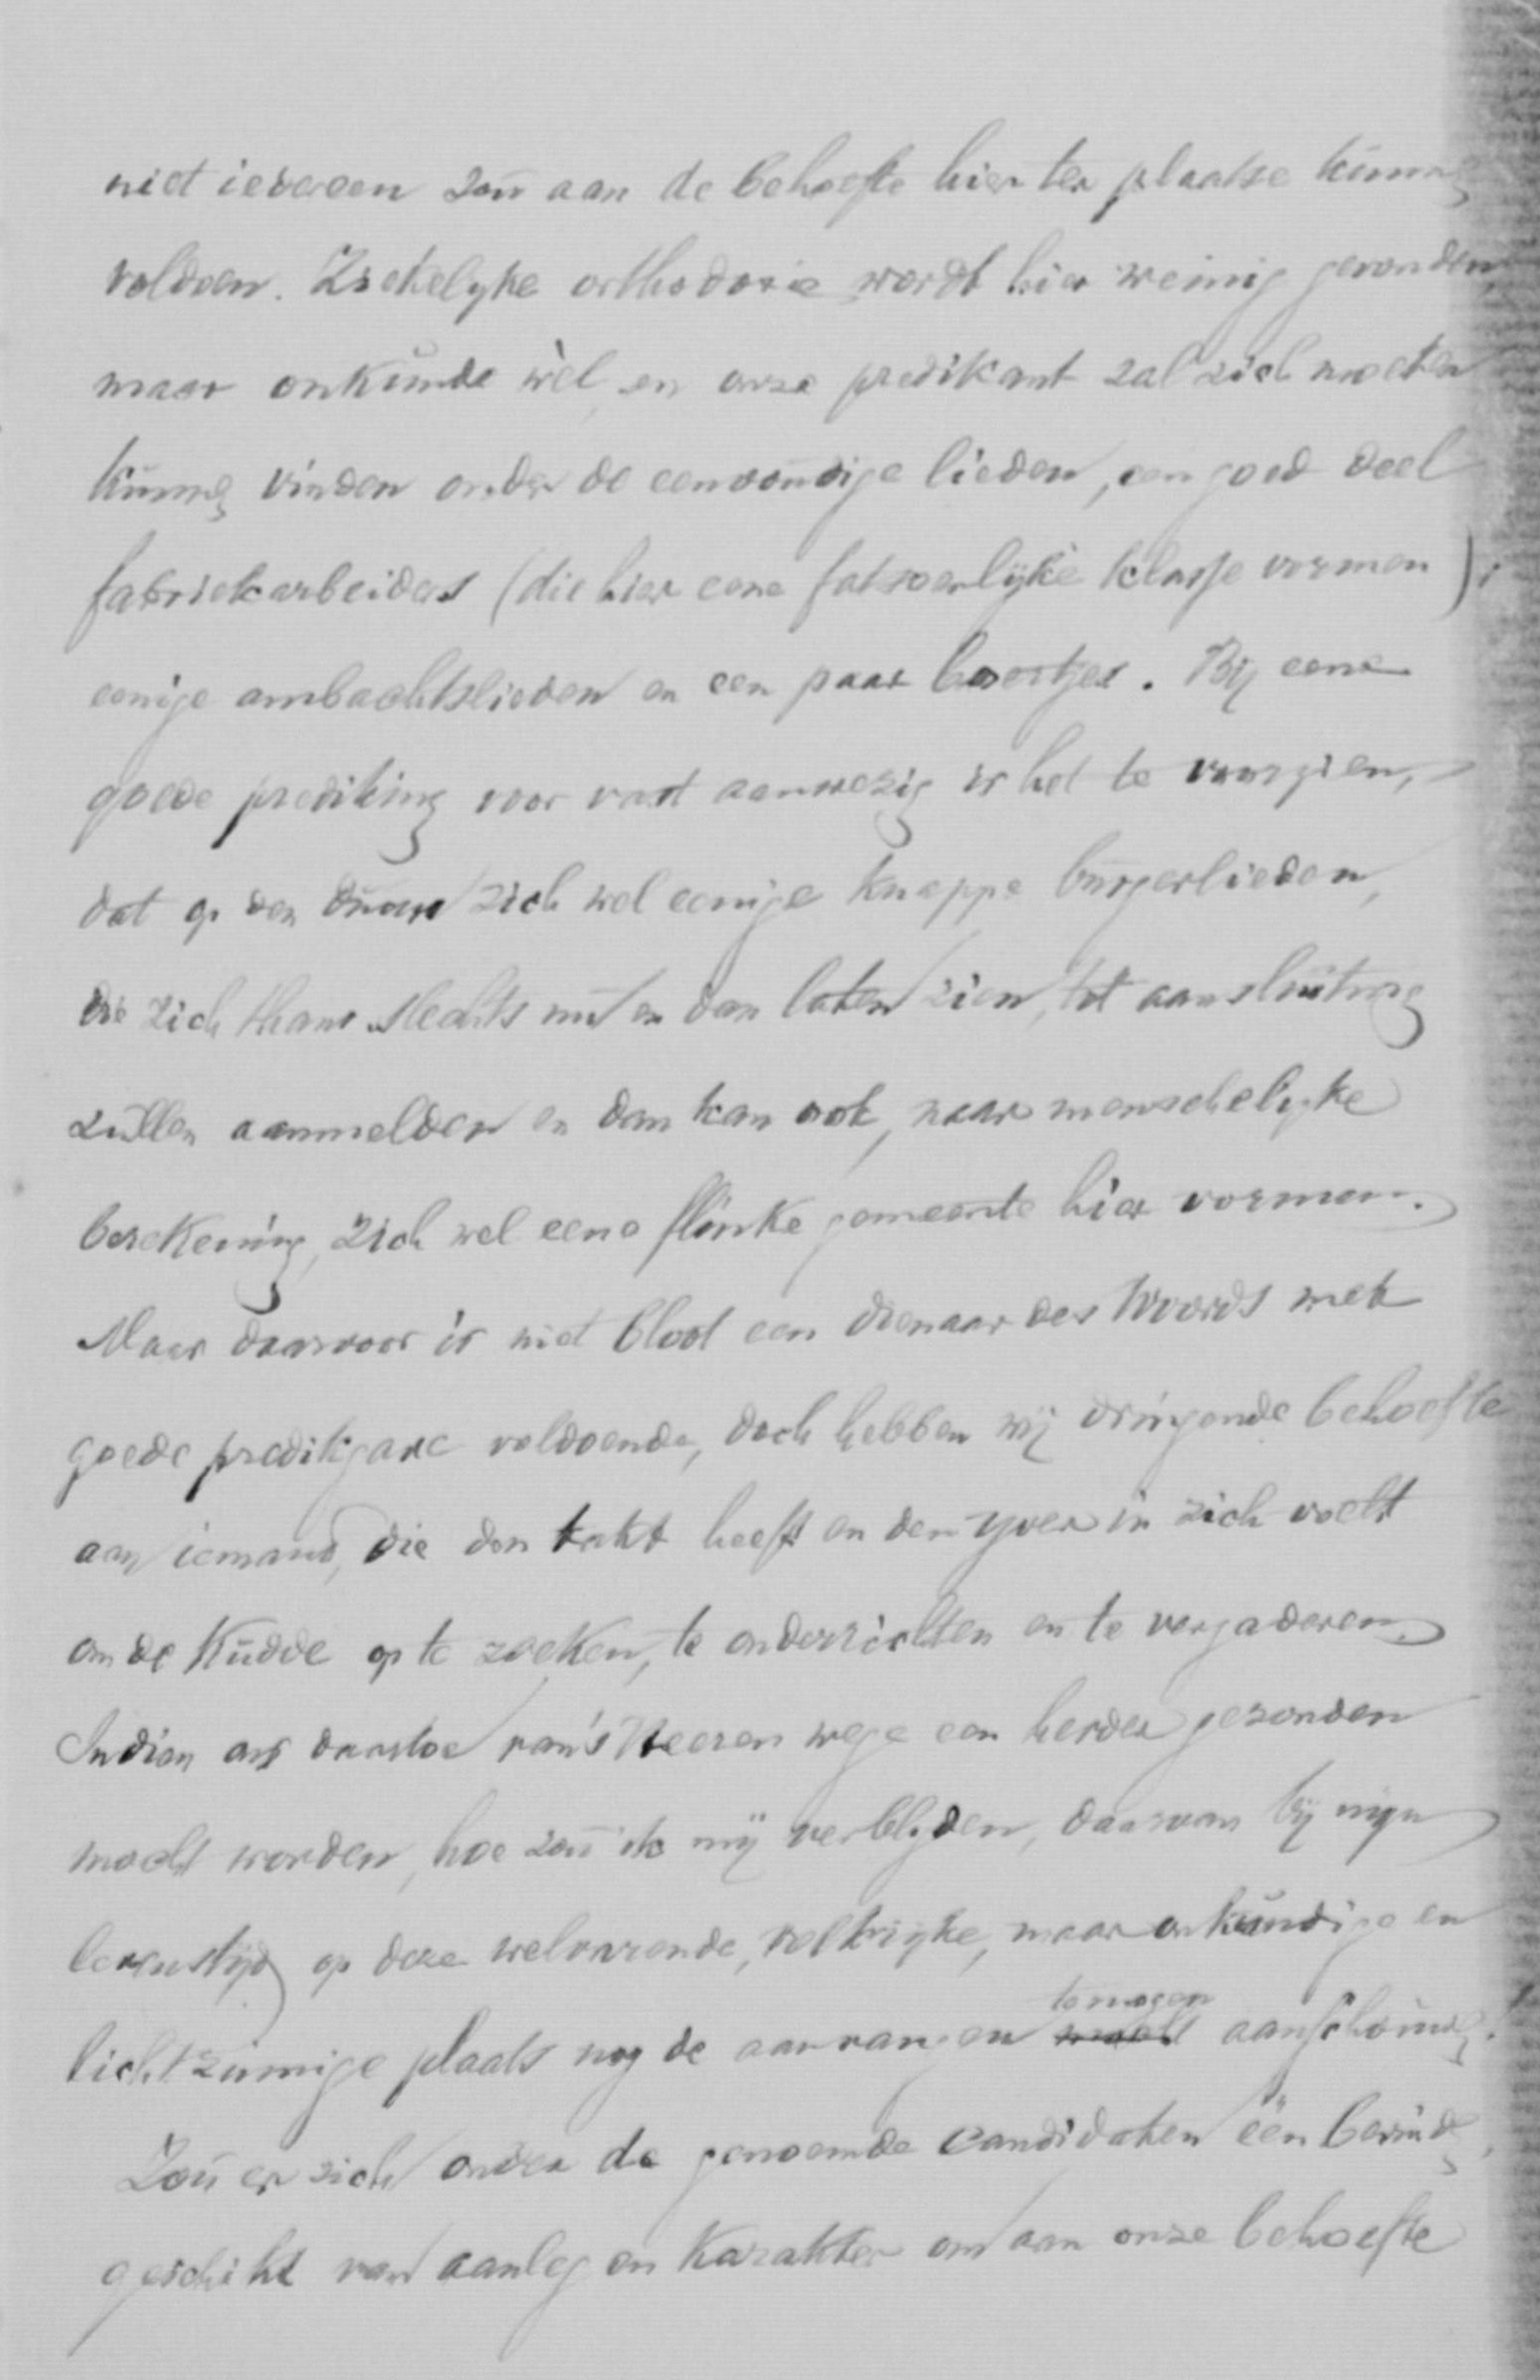 niet iedereen zou aan de behoefte hier ter plaatse kunnen
voldoen. Ziekelyke orthodoxie wordt hier weinig gevonden,
maar onkunde wèl, en onze predikant zal zich moeten
kunnen vinden onder de eenvoudige lieden, een goed deel
fabriekarbeiders (die hier eene fatsoenlijke klasse vormen);
eenige ambachtslieden en een paar boertjes. Bij eene
goede prediking voor vast aanwezig is het te voorzien,
dat op den duur zich wel eenige knappe burgerlieden,
die zich thans slechts nu en dan laten zien, tot aansluiting
zullen aanmelden en dan kan ook, naar menschelyke
berekening, zich wel eene flinke gemeente hier vormen.
Maar daarvoor is niet bloot een dienaar des Woords met
goede predikgave voldoende, doch hebben wij dringende behoefte
aan iemand, die den takt heeft en den yver in zich voelt
om de kudde op te zoeken, te onderrichten en te vergaderen.
Indien ons daartoe van 's Heeren wege een herder gezonden
mocht worden, hoe zou ik mij verblyden, daarvan bij mijn
levenstijd op deze welvarende, volkrijke, maar onkundige en
lichtzinnige plaats nog de aanvangen te mogen aanschouwen.
Zou er zich onder de genoemde candidaten één bevinden,
geschikt van aanleg en karakter om aan onze behoefte